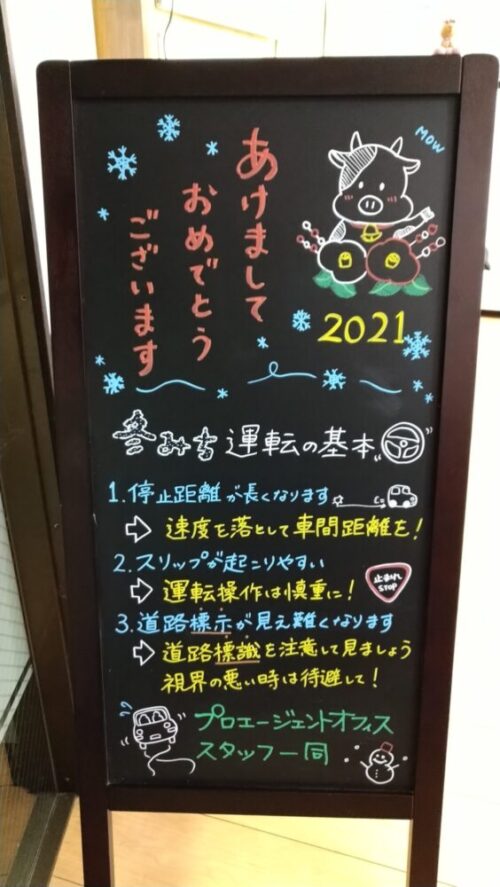 あけまして
おめでとう
ございます
MOW
2021
冬みち運転の基本
1.停止距離が長くなります
⇨ 速度を落として車間距離を!
2.スリップが起こりやすい
⇨ 運転操作は慎重に!
止まれ
STOP
3.道路標示が見え難くなります
⇨ 道路標識を注意して見ましょう
視界の悪い時は待避して!
プロエージェントオフィス
スタッフ一同